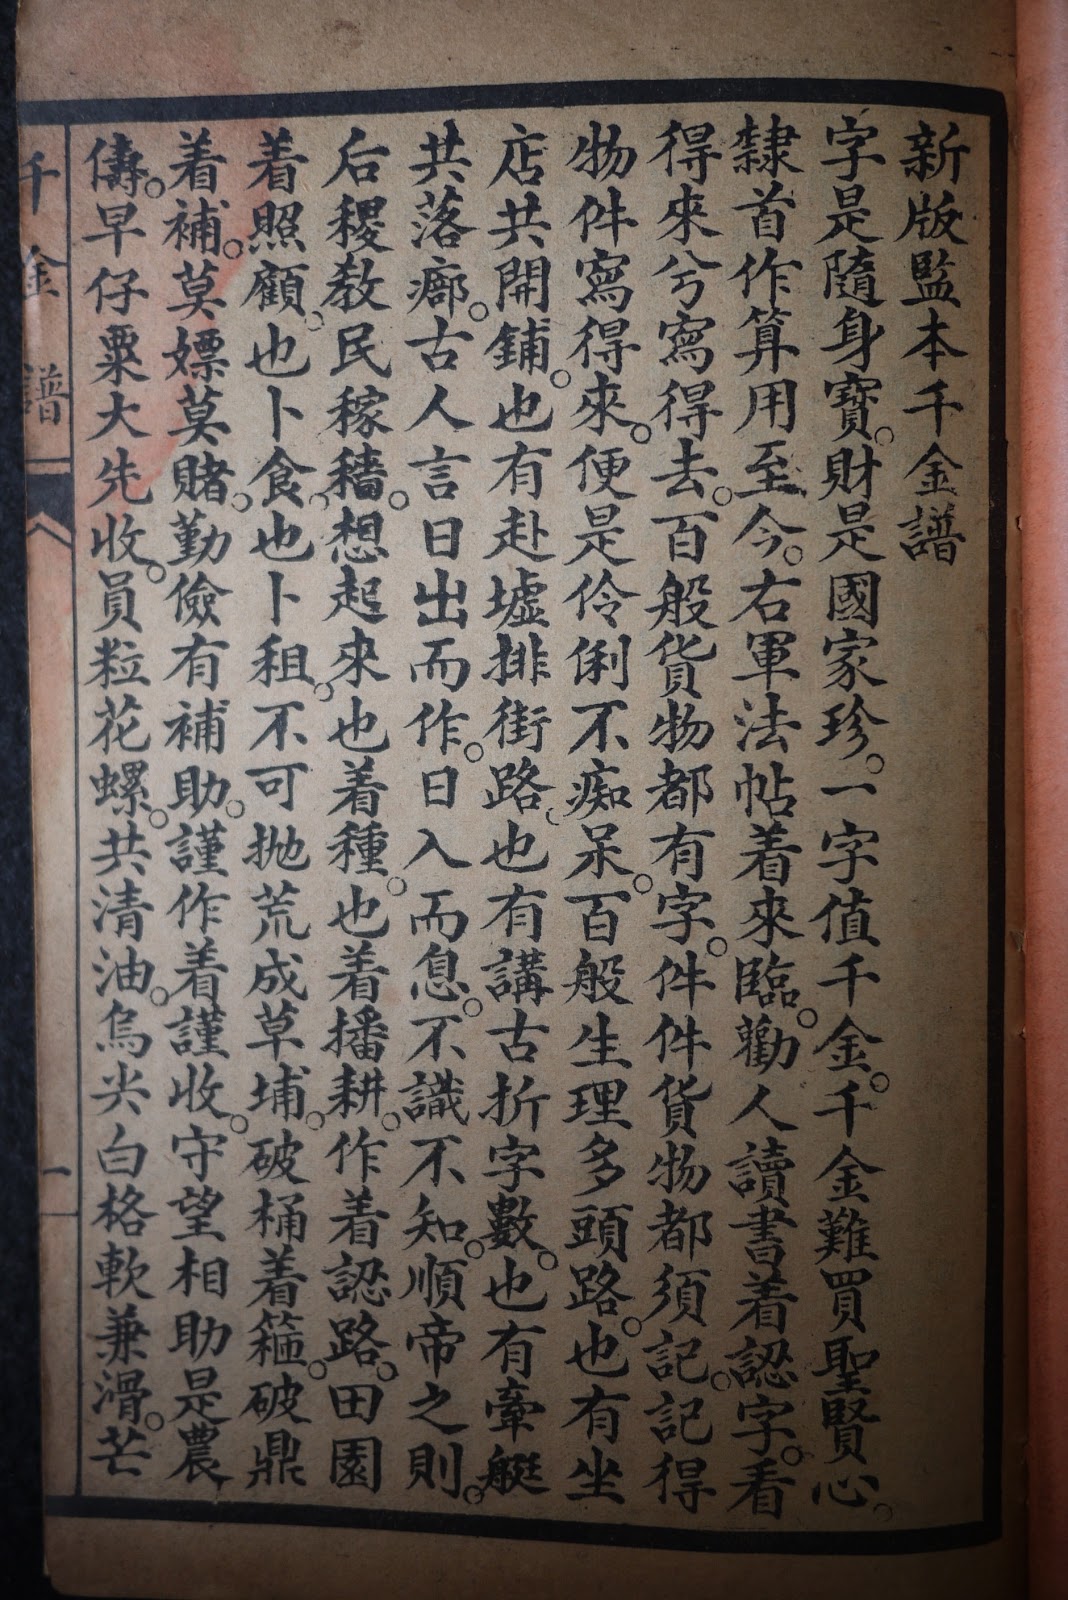 新版監本千金譜
字是隨身寶。財是國家珍。一字值千金。千金難買聖賢心。
隸首作算用至今。右軍法帖着來臨。勸人讀書着認字。看
得來兮寫得去。百般貨物都有字。件件貨物都須記。記得
物件寫得來。便是伶俐不痴呆。百般生理多頭路。也有坐
店共開鋪。也有赴墟排街路。也有講古折字數。也有牽艇
共落廍。古人言日出而作。日入而息。不識不知。順帝之則。
后稷教民稼穡。想起來也着種。也着播耕。作着認路。田園
着照顧。也卜食。也卜租。不可拋荒成草埔。破桶着箍。破鼎
着補。莫嫖莫賭。勤儉有補助。謹作着謹收。守望相助是農
儔。早仔粟大先收。員粒花螺。共清油。烏尖白格軟兼滑。芒
千金譜
一